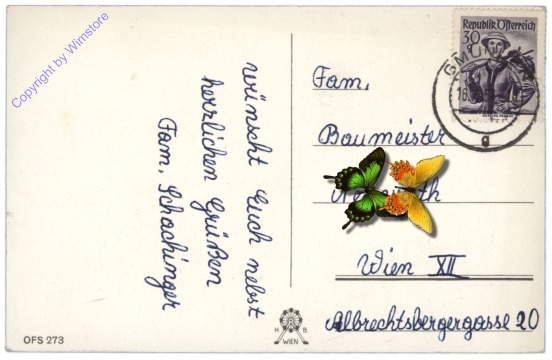 Copyright by Wimstore
wünscht Euch nebst
herzlichen Grüßen
Fam. Schachinger
Republik Österreich
30
Fam.
Baumeister
Wien XII
Albrechtsbergergasse 20
OFS 273
H. B.
WIEN